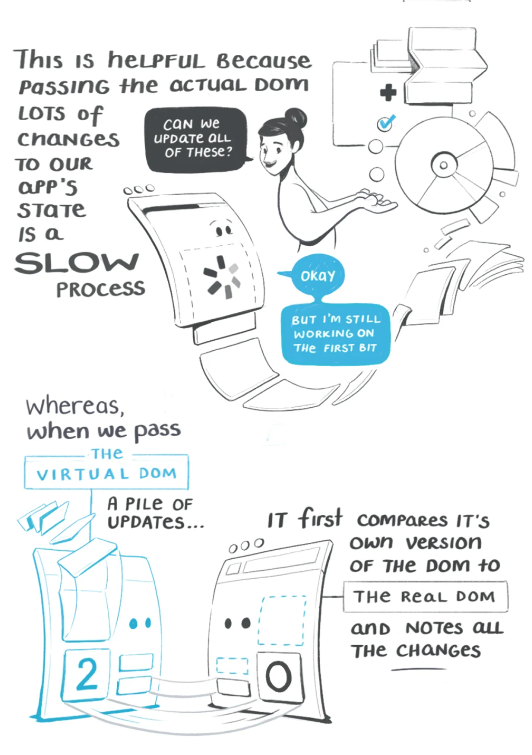 THIS IS HELPFUL BECAUSE
PASSING THE ACTUAL DOM
LOTS OF
CHANGES
TO OUR
APP'S
STATE
IS A
SLOW
PROCESS
CAN WE
UPDATE ALL
OF THESE?
OKAY
BUT I'M STILL
WORKING ON
THE FIRST BIT
Whereas,
when we pass
THE
VIRTUAL DOM
A PILE OF
UPDATES...
IT first COMPARES IT'S
OWN VERSION
OF THE DOM to
THE REAL DOM
AND NOTES ALL
THE CHANGES
2
0